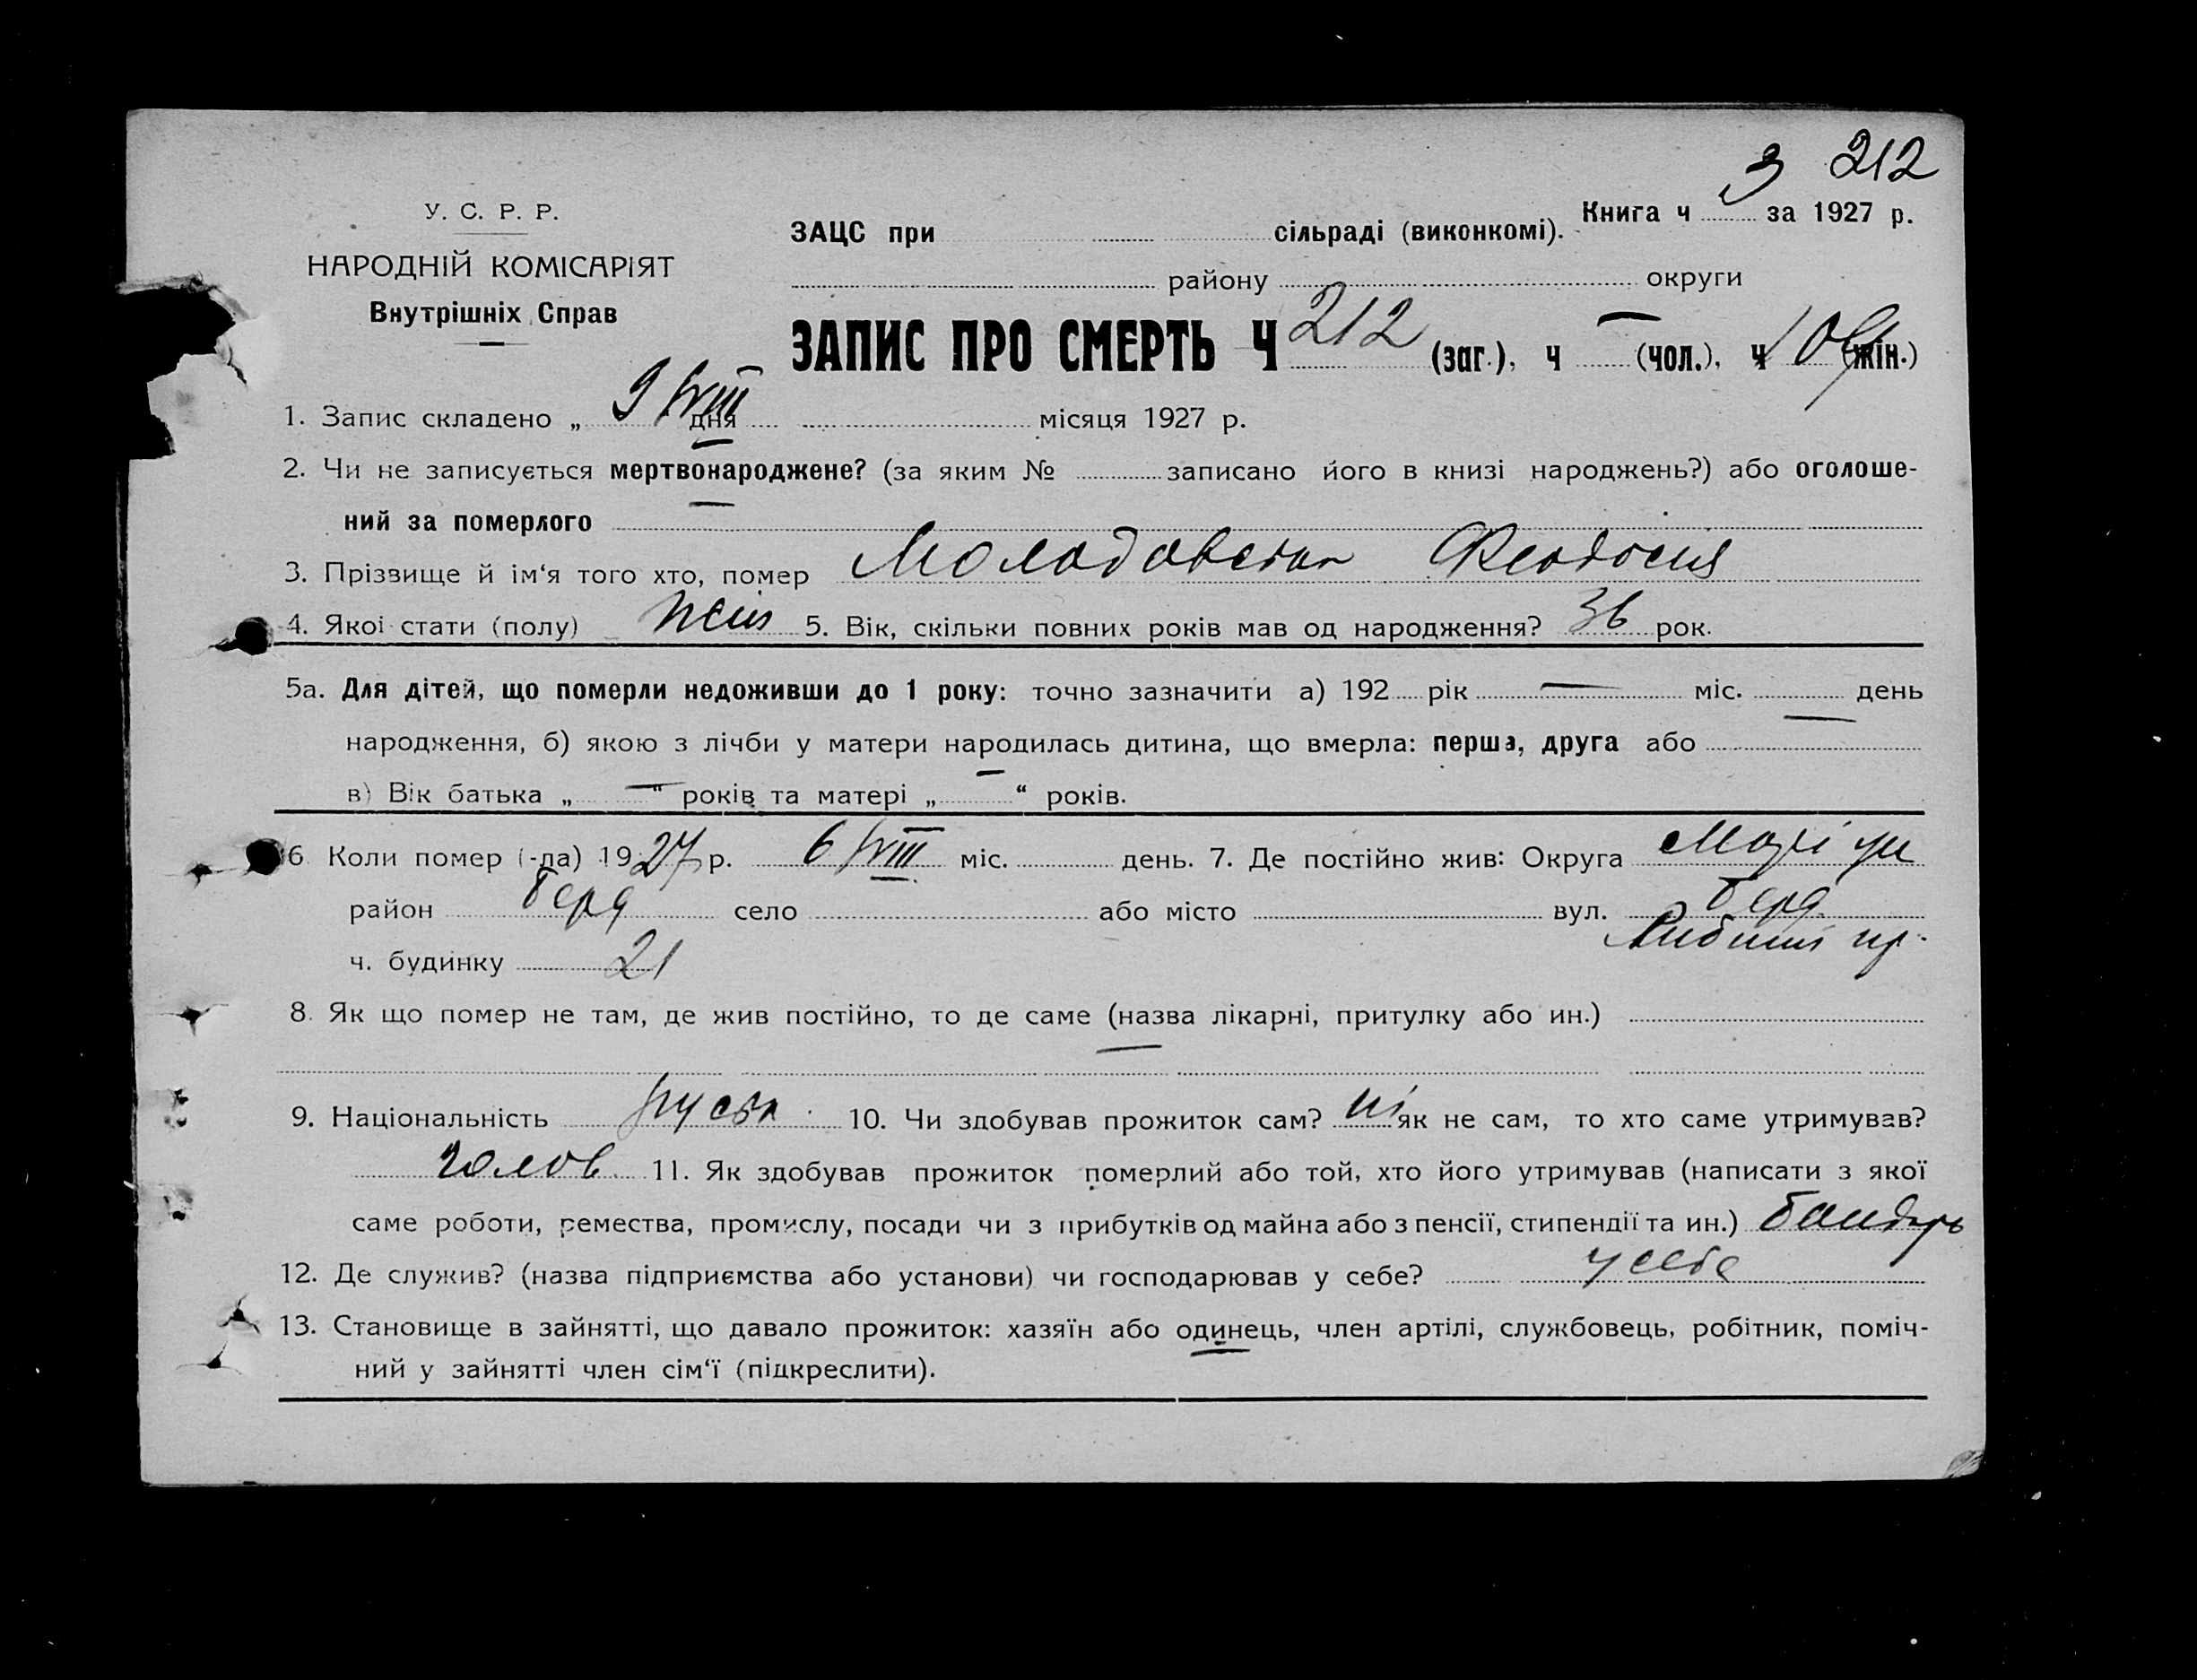 3 212
У. С. Р. Р.
НАРОДНІЙ КОМІСАРІЯТ
Внутрішніх Справ
Книга ч за 1927 р.
ЗАЦС при сільраді (виконкомі).
району округи
ЗАПИС ПРО СМЕРТЬ Ч 212 (заг.), ч — (чол.), ч (жін.)
1. Запис складено „ 9/VIII дня місяця 1927 р.
2. Чи не записується мертвонароджене? (за яким № записано його в книзі народжень?) або оголоше-
ний за померлого —
3. Прізвище й ім‘я того хто, помер Феодосия
4. Якої стати (полу) жін 5. Вік, скільки повних років мав од народження? 36 рок.
5а. Для дітей, що померли недоживши до 1 року: точно зазначити а) 192 рік — міс. день
народження, б) якою з лічби у матери народилась дитина, що вмерла: перша, друга або —
в) Вік батька „ — “ років та матері „ — “ років.
6 Коли помер (-ла) 1927 р. 6/VIII міс. день. 7. Де постійно жив: Округа Маріуп
район Берд село або місто вул. Берд.
ч. будинку 21
8. Як що помер не там, де жив постійно, то де саме (назва лікарні, притулку або ин.)
—
9. Національність руська 10. Чи здобував прожиток сам? ні як не сам, то хто саме утримував?
чолов. 11. Як здобував прожиток померлий або той, хто його утримував (написати з якої
саме роботи, ремества, промислу, посади чи з прибутків од майна або з пенсії, стипендії та ин.) бондарь
12. Де служив? (назва підприємства або установи) чи господарював у себе? у себе
13. Становище в зайнятті, що давало прожиток: хазяїн або одинець, член артілі, службовець, робітник, поміч-
ний у зайнятті член сім‘ї (підкреслити).